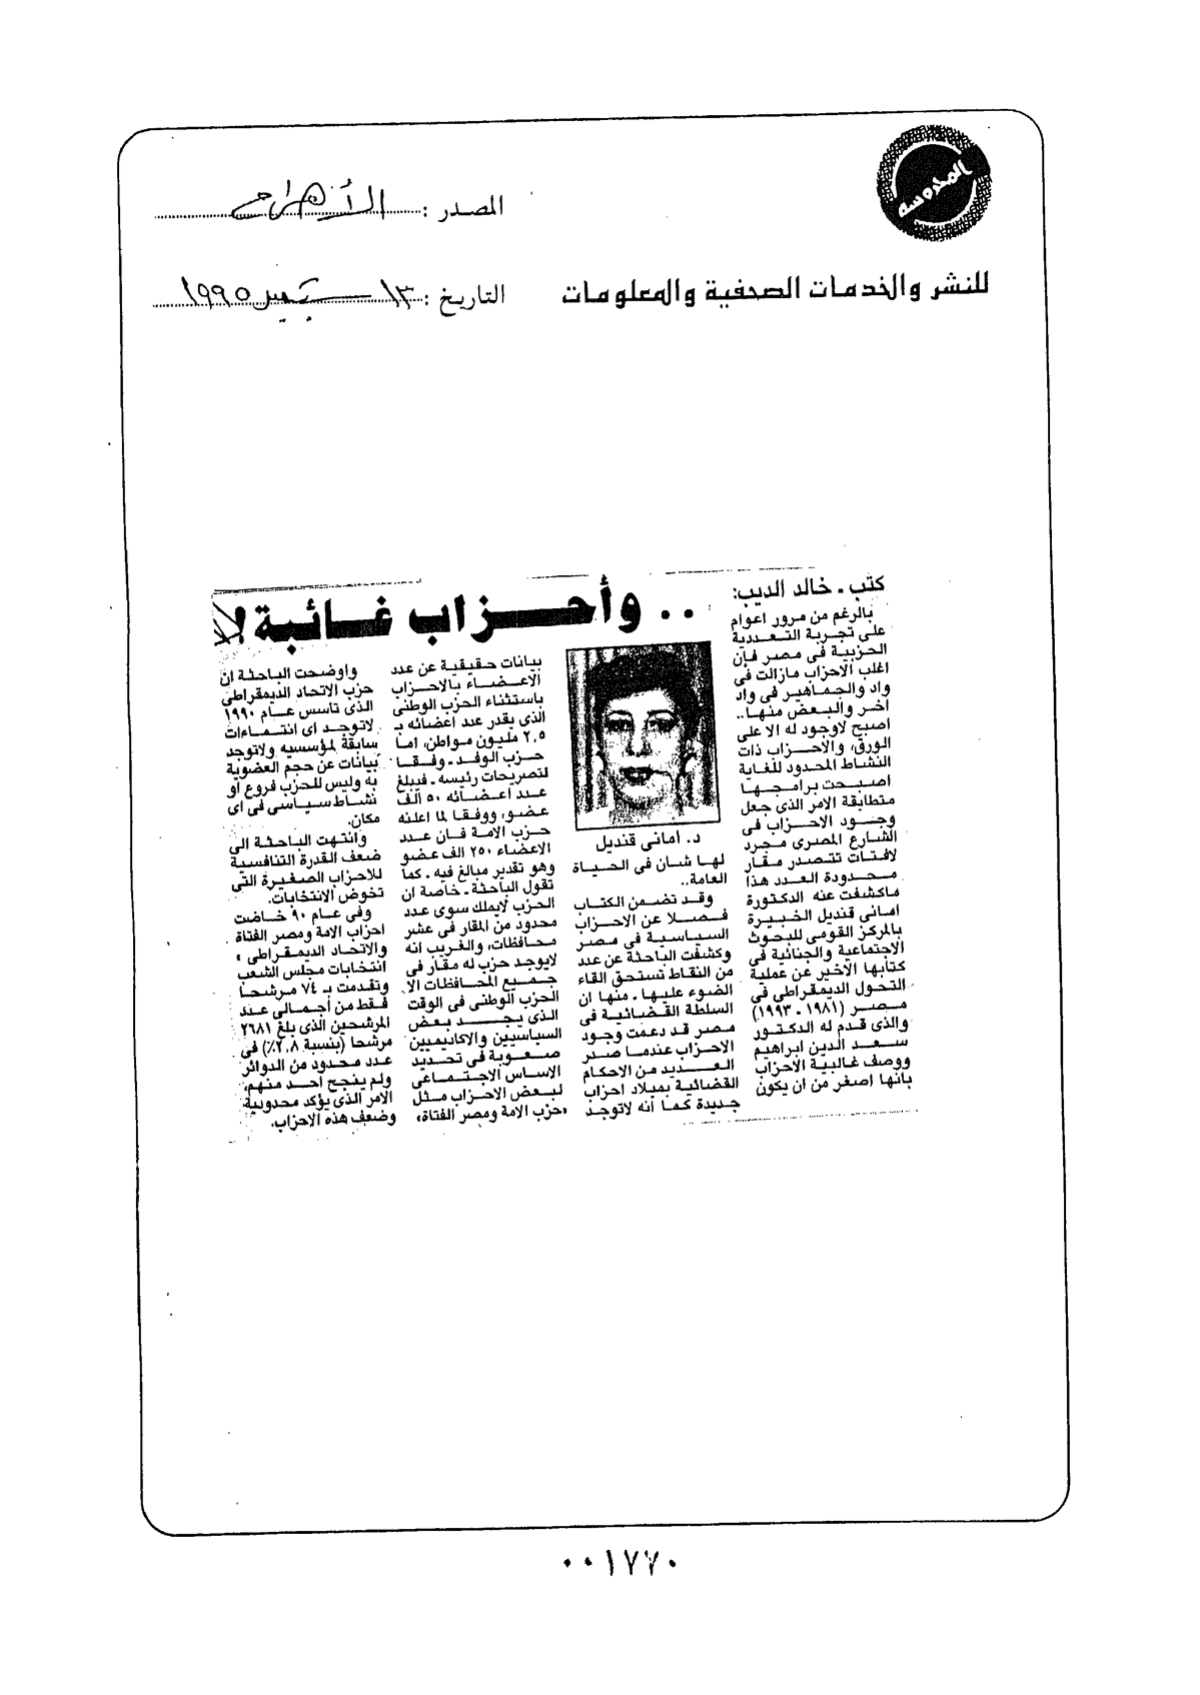 المحروسة
المصدر : الأهرام
للنشر والخدمات الصحفية والمعلومات
التاريخ : ١٣ سبتمبر ١٩٩٥
. . وأحـــزاب غـائبة !
كتب ـ خالد الديب:
بالرغم من مرور اعوام
على تجربة التعددية
الحزبية فى مصر فإن
اغلب الاحزاب مازالت فى
واد والجماهير فى واد
اخر والبعض منها..
اصبح لاوجود له الا على
الورق، والاحزاب ذات
النشاط المحدود للغاية
اصبحت برامجها
متطابقة الامر الذى جعل
وجود الاحزاب فى
الشارع المصرى مجرد
لافتات تتصدر مقار
محدودة العدد هذا
ماكشفت عنه الدكتورة
امانى قنديل الخبيرة
بالمركز القومى للبحوث
الاجتماعية والجنائية فى
كتابها الأخير عن عملية
التحول الديمقراطى فى
مصر (١٩٨١ ـ ١٩٩٣)
والذى قدم له الدكتور
سعد الدين ابراهيم
ووصف غالبية الأحزاب
بانها اصغر من ان يكون
د. أمانى قنديل
لها شان فى الحياة
العامة..
وقد تضمن الكتاب
فصلا عن الاحزاب
السياسية فى مصر
وكشفت الباحثة عن عدد
من النقاط تستحق القاء
الضوء عليها ـ منها ان
السلطة القضائية فى
مصر قد دعمت وجود
الاحزاب عندما صدر
العديد من الاحكام
القضائية بميلاد احزاب
جديدة كما انه لاتوجد
بيانات حقيقية عن عدد
الاعضاء بالاحزاب
باستثناء الحزب الوطنى
الذى يقدر عدد اعضائه بـ
٢.٥ مليون مواطن، اما
حزب الوفد ـ وفقا
لتصريحات رئيسه ـ فيبلغ
عدد اعضائه ٥٠ الف
عضو، ووفقا لما اعلنه
حزب الامة فان عدد
الاعضاء ٢٥٠ الف عضو
وهو تقدير مبالغ فيه ـ كما
تقول الباحثة ـ خاصة ان
الحزب لايملك سوى عدد
محدود من المقار فى عشر
محافظات، والغريب انه
لايوجد حزب له مقار فى
جميع المحافظات الا
الحزب الوطنى فى الوقت
الذى يجد بعض
السياسيين والاكاديميين
صعوبة فى تحديد
الاساس الاجتماعى
لبعض الاحزاب مثل
«حزب الامة ومصر الفتاة»
واوضحت الباحثة ان
حزب الاتحاد الديمقراطى
الذى تاسس عام ١٩٩٠
لاتوجد اى انتماءات
سابقة لمؤسسيه ولاتوجد
بيانات عن حجم العضوية
به وليس للحزب فروع أو
نشاط سياسى فى اى
مكان.
وانتهت الباحثة الى
ضعف القدرة التنافسية
للاحزاب الصغيرة التى
تخوض الانتخابات.
وفى عام ٩٠ خاضت
احزاب الامة ومصر الفتاة
والاتحاد الديمقراطى «
انتخابات مجلس الشعب
وتقدمت بـ ٧٤ مرشحا
فقط من أجمالى عدد
المرشحين الذى بلغ ٢٦٨١
مرشحا (بنسبة ٢.٨٪) فى
عدد محدود من الدوائر
ولم ينجح احد منهم،
الامر الذى يؤكد محدودية
وضعف هذه الاحزاب.
٠٠١٧٧٠